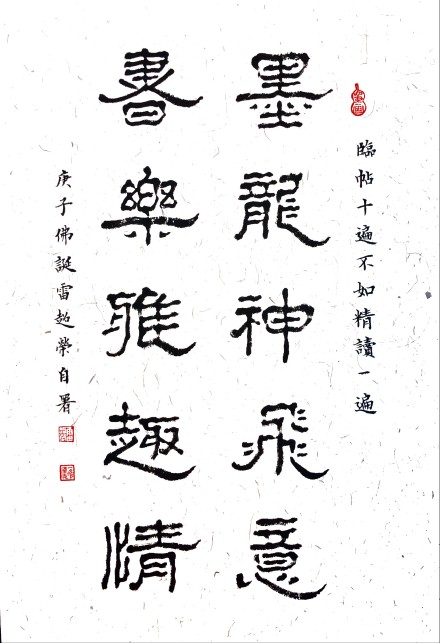 臨帖十遍不如精讀一遍
墨龍神飛意
書樂雅趣情
庚子佛誕雷超榮自署